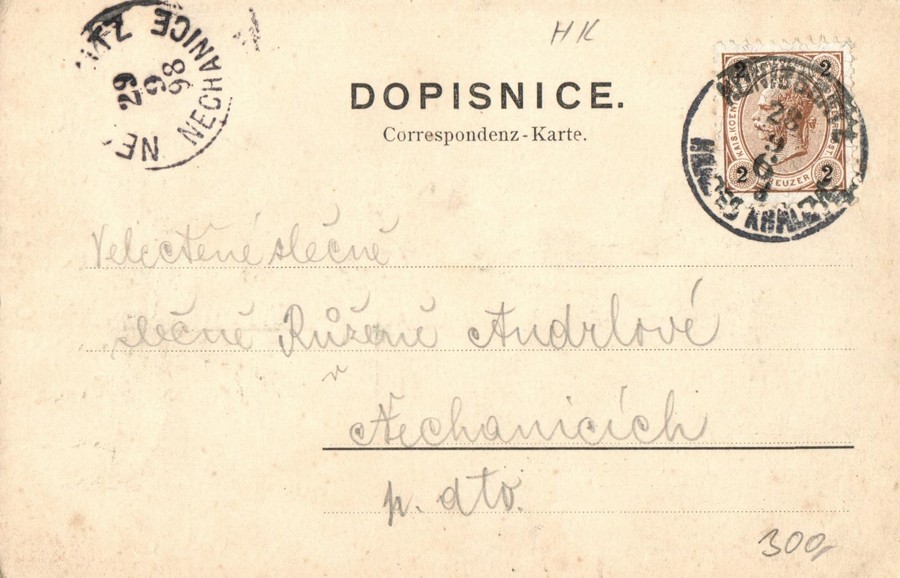 HK
NECHANICE
29
9
98
DOPISNICE.
Correspondenz-Karte.
2 2
2 KREUZER 2
Velectěné slečně
slečně Růženě Andrlové
v
Nechanicích
p. dto.
300,-